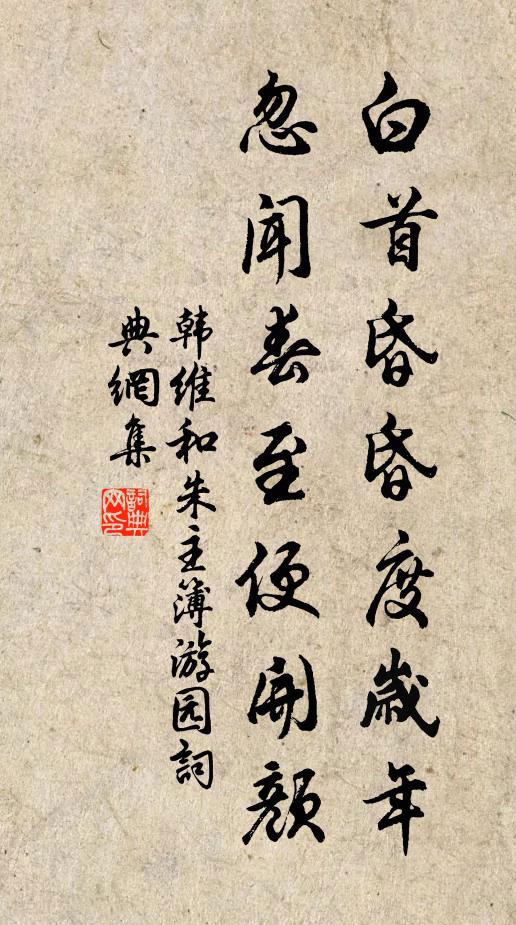 白首昏昏度歲年
忽闻春至便開顏
韩維和朱主簿游园詞
典網集
詞典网印